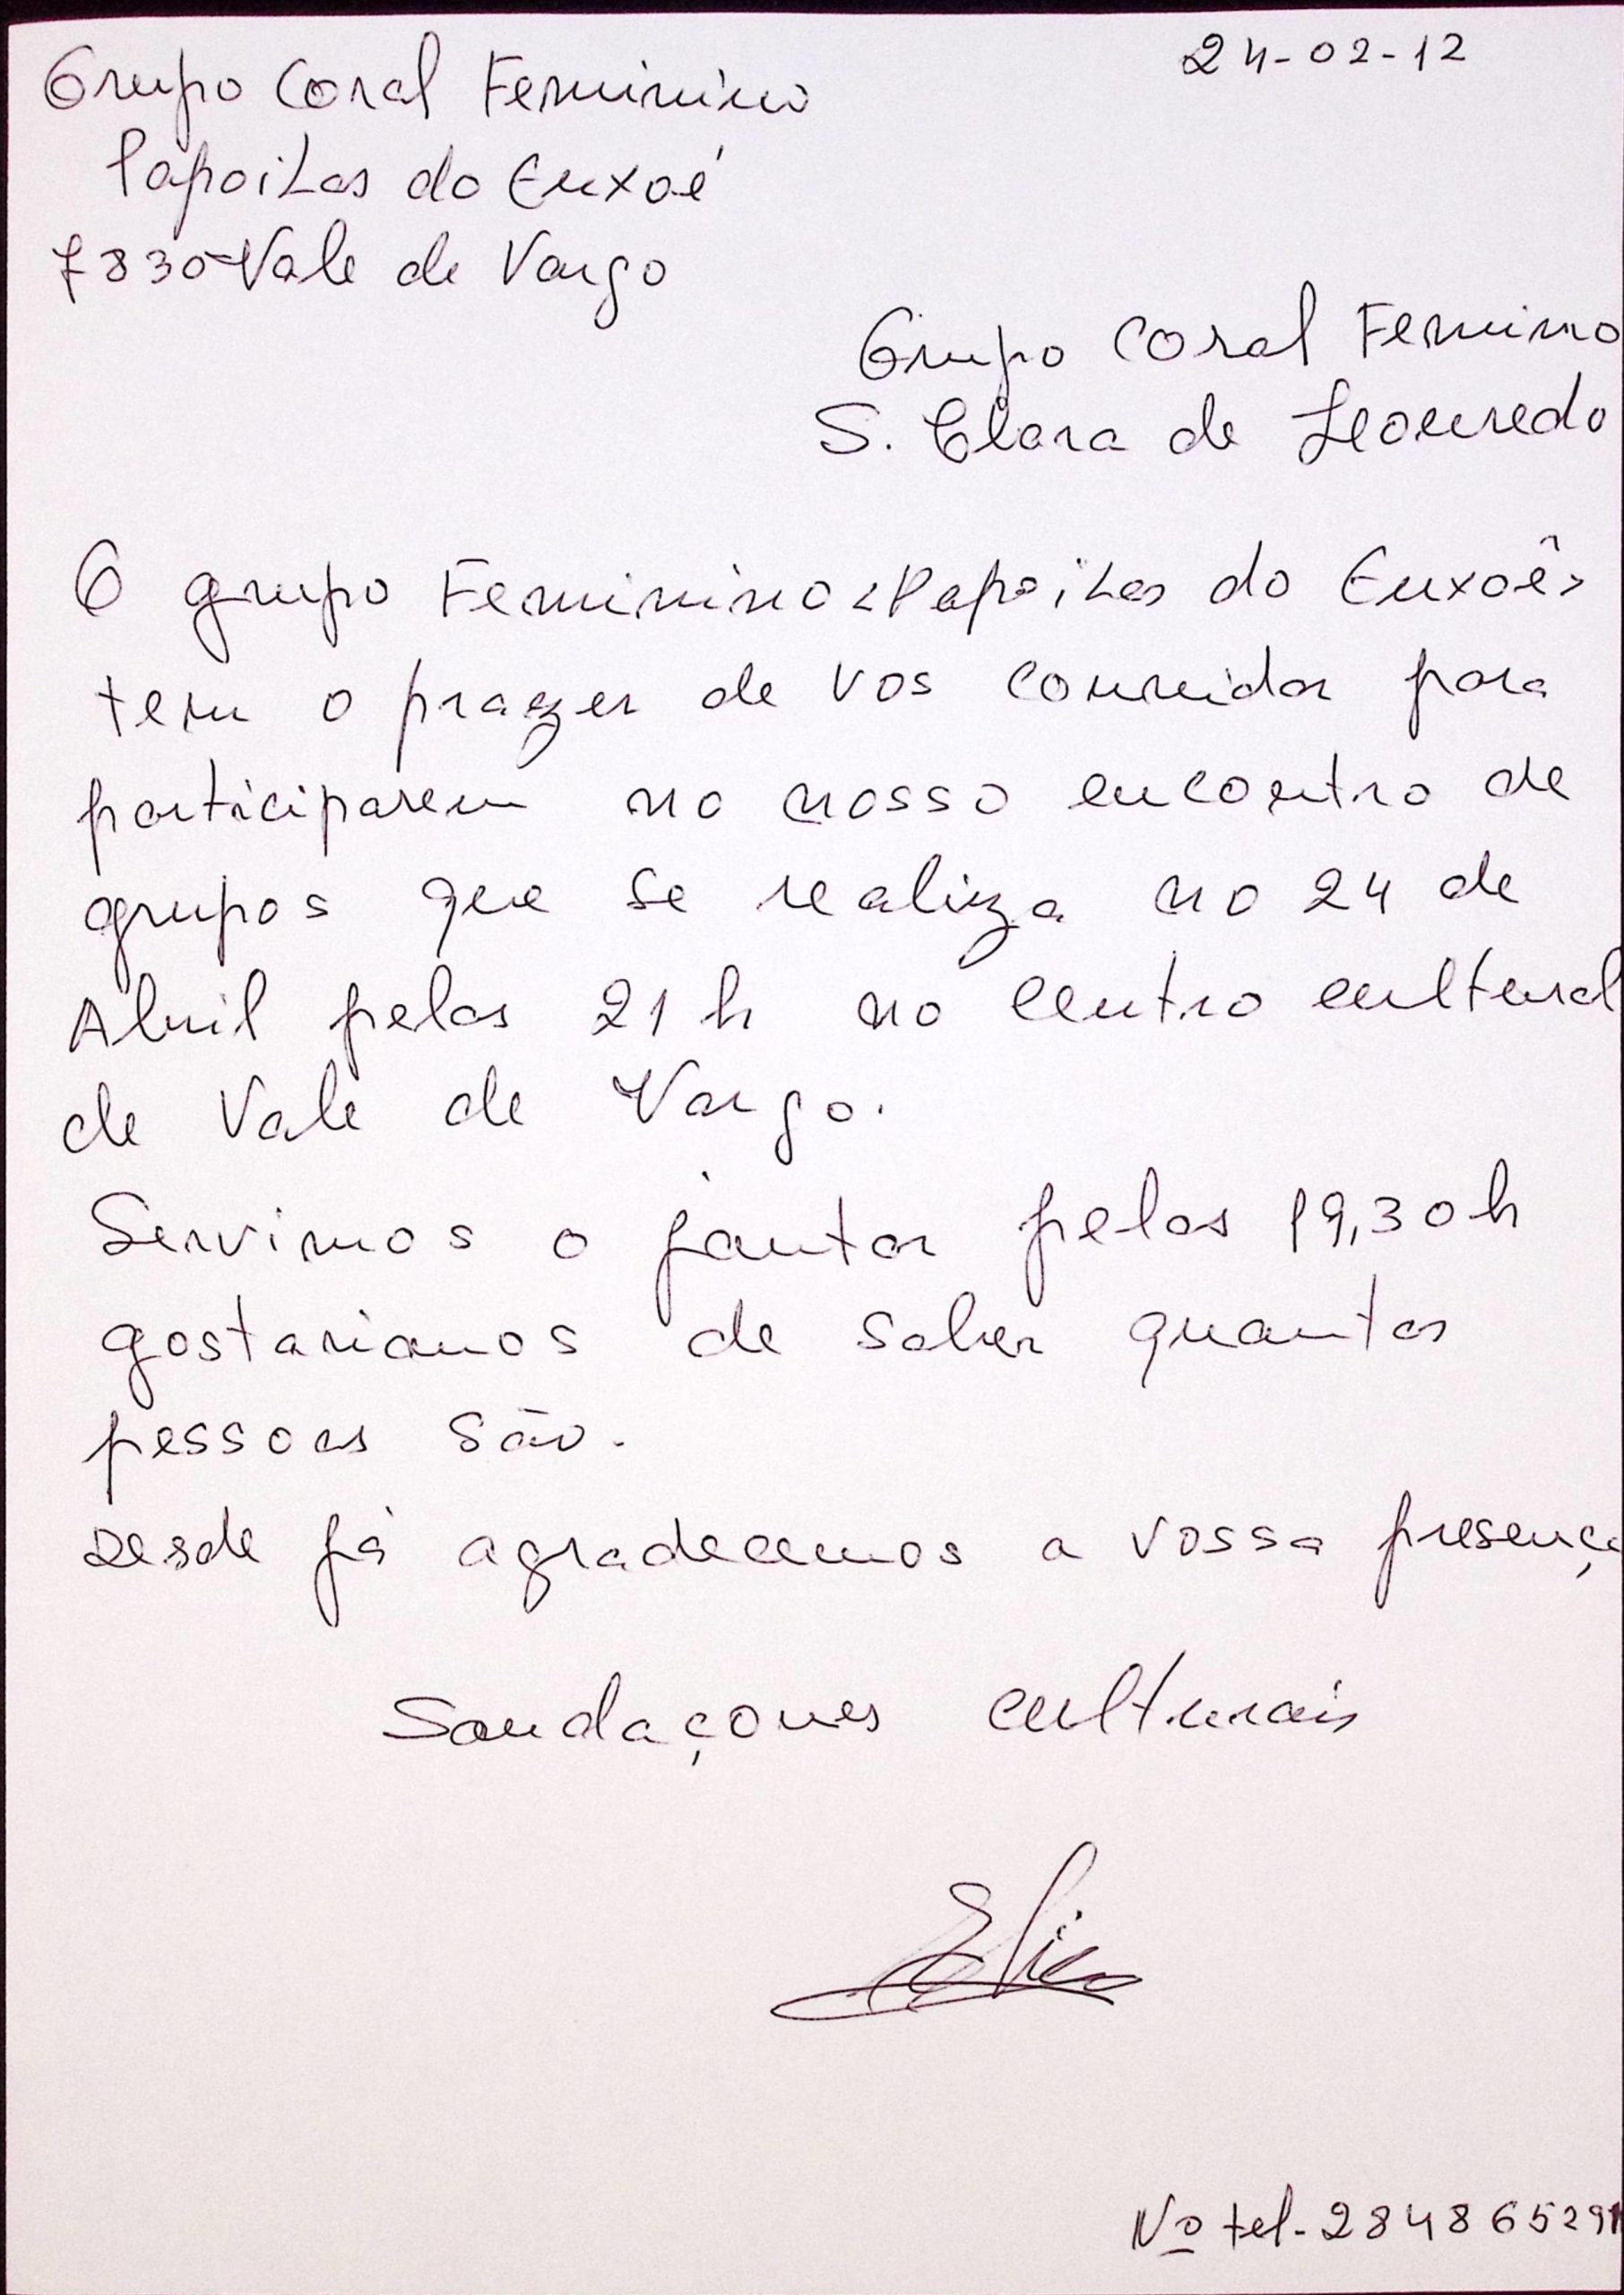 24-02-12
Grupo Coral Feminino
Papoilas do Enxoé
7830-Vale de Vargo
Grupo Coral Feminino
S. Clara de Louredo
O grupo Feminino <Papoilas do Enxoê>
tem o prazer de vos convidar para
participarem no nosso encontro de
grupos que se realiza no 24 de
Abril pelas 21 h no centro cultural
de Vale de Vargo.
Servimos o jantar pelas 19,30h
gostariamos de saber quantas
pessoas são.
Desde já agradecemos a vossa presença
Saudaçoues culturais
Nº tel-284865291